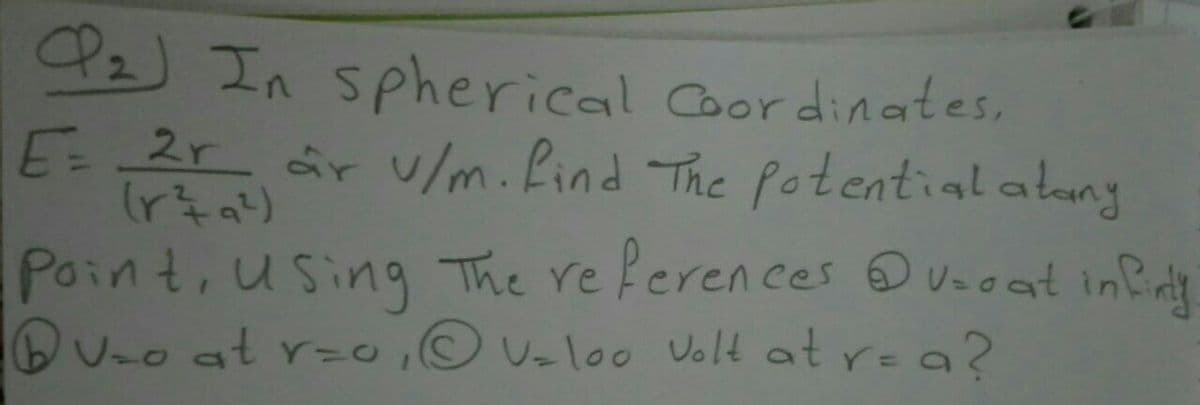 Q2) In spherical Coordinates,
E = 2r/(r²+a²) âr V/m. find The potential at any
point, using The references ⓐ V=0 at infinty
ⓑ V=0 at r=0, ⓒ V=100 Volt at r=a?